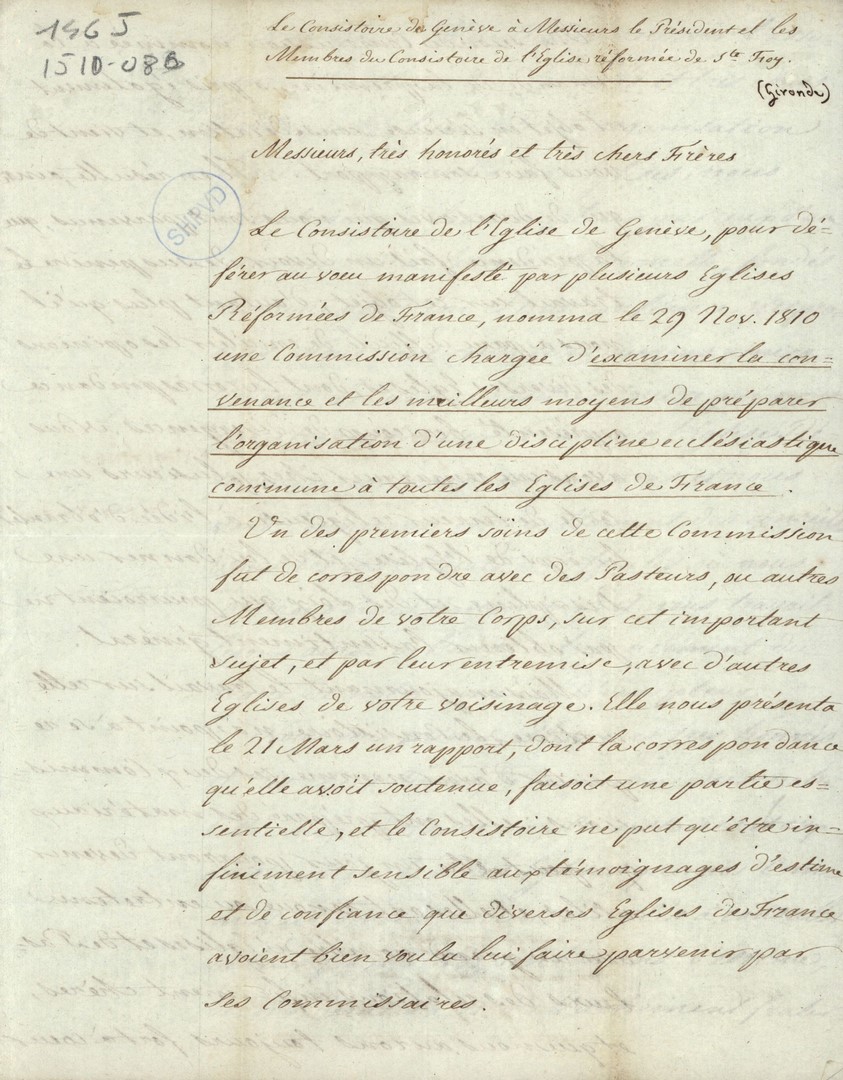 1465
1510-086
Le Consistoire de Genève à Messieurs le Président et les
Membres du Consistoire de l'Eglise réformée de Ste Foy.
(Gironde)
Messieurs, très honorés et très chers Frères
SHPVD
Le Consistoire de l'Eglise de Genève, pour dé=
férer au vœu manifesté par plusieurs Eglises
Réformées de France, nomma le 29 Nov. 1810
une Commission chargée d'examiner la con=
venance et les meilleurs moyens de préparer
l'organisation d'une discipline ecclésiastique
commune à toutes les Eglises de France.
Un des premiers soins de cette Commission
fut de correspondre avec des Pasteurs, ou autres
Membres de votre Corps, sur cet important
sujet, et par leur entremise, avec d'autres
Eglises de votre voisinage. Elle nous présenta
le 21 Mars un rapport, dont la correspondance
qu'elle avoit soutenue, faisoit une partie es=
sentielle, et le Consistoire ne put qu'être in=
finiment sensible aux témoignages d'estime
et de confiance que diverses Eglises de France
avoient bien voulu lui faire parvenir par
ses Commissaires.